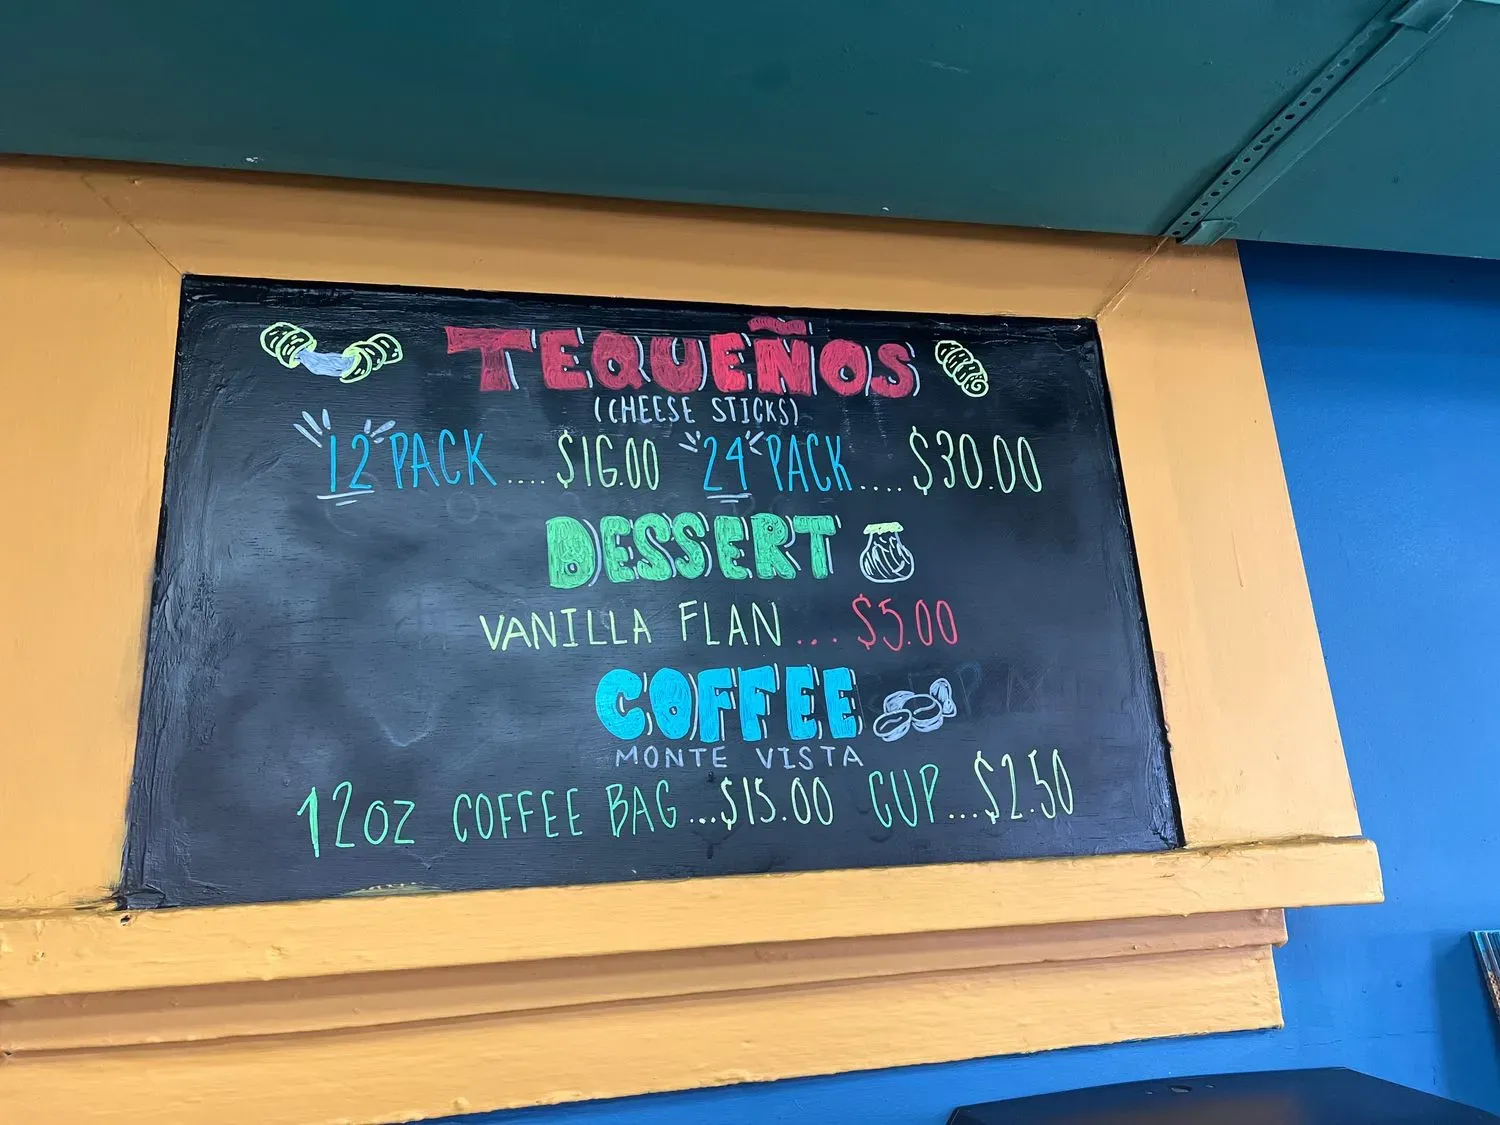 TEQUEÑOS
(CHEESE STICKS)
12 PACK....$16.00 24 PACK....$30.00
DESSERT
VANILLA FLAN...$5.00
COFFEE
MONTE VISTA
12OZ COFFEE BAG...$15.00 CUP...$2.50